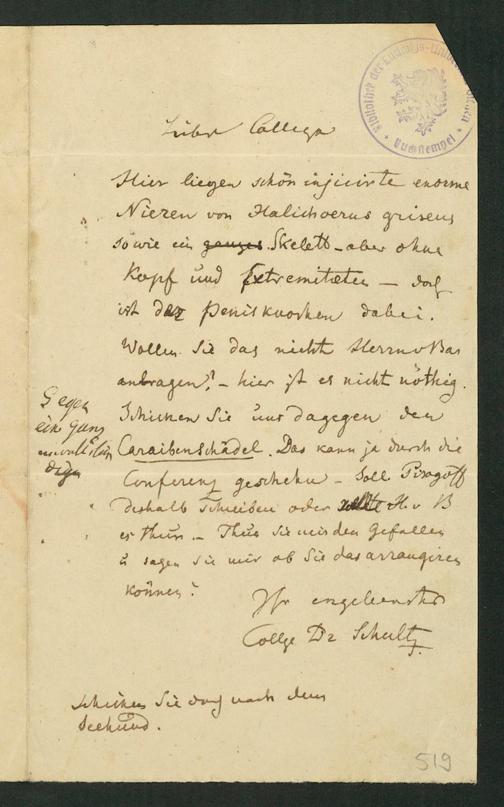 Bibliothek der Ludwigs-Univers. Giessen
Buchstempel
Lieber College
Hier liegen schön injicirte enorme
Nieren von Halichoerus griseus
sowie ein ganzes Skelett – aber ohne
Kopf und Extremitæten – doch
ist der Penisknochen dabei.
Wollen Sie das nicht Herrn v Bär
antragen? – hier ist es nicht nöthig.
Schicken Sie uns dagegen den
Caraibenschädel. Das kann ja durch die
Conferenz geschehn – Soll Pirogoff
deshalb schreiben oder sollte H v B
es thun – Thun Sie mir den Gefallen
u sagen Sie mir ob Sie das arrangiren
können?
Ihr ergebenster
College Dr Schultz
Gegen
ein ganz
unvollstän
dige
Schicken Sie doch nach dem
Seehund.
519